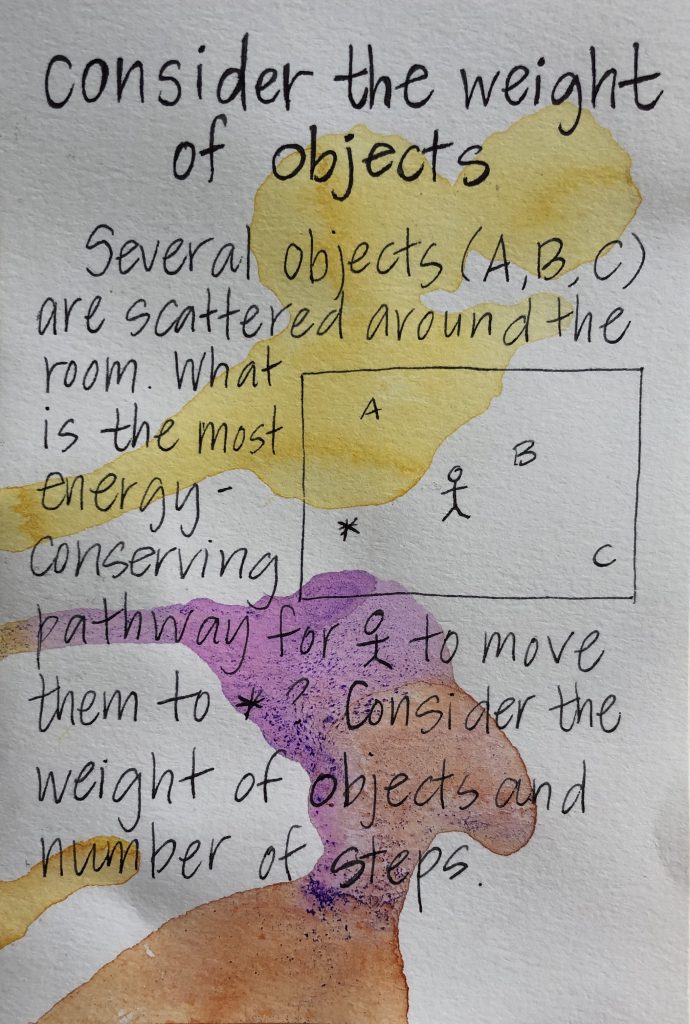 consider the weight
of objects
Several objects (A, B, C)
are scattered around the
room. What
is the most
energy-
conserving
pathway for to move
them to * ? Consider the
weight of objects and
number of steps.
A
B
*
C